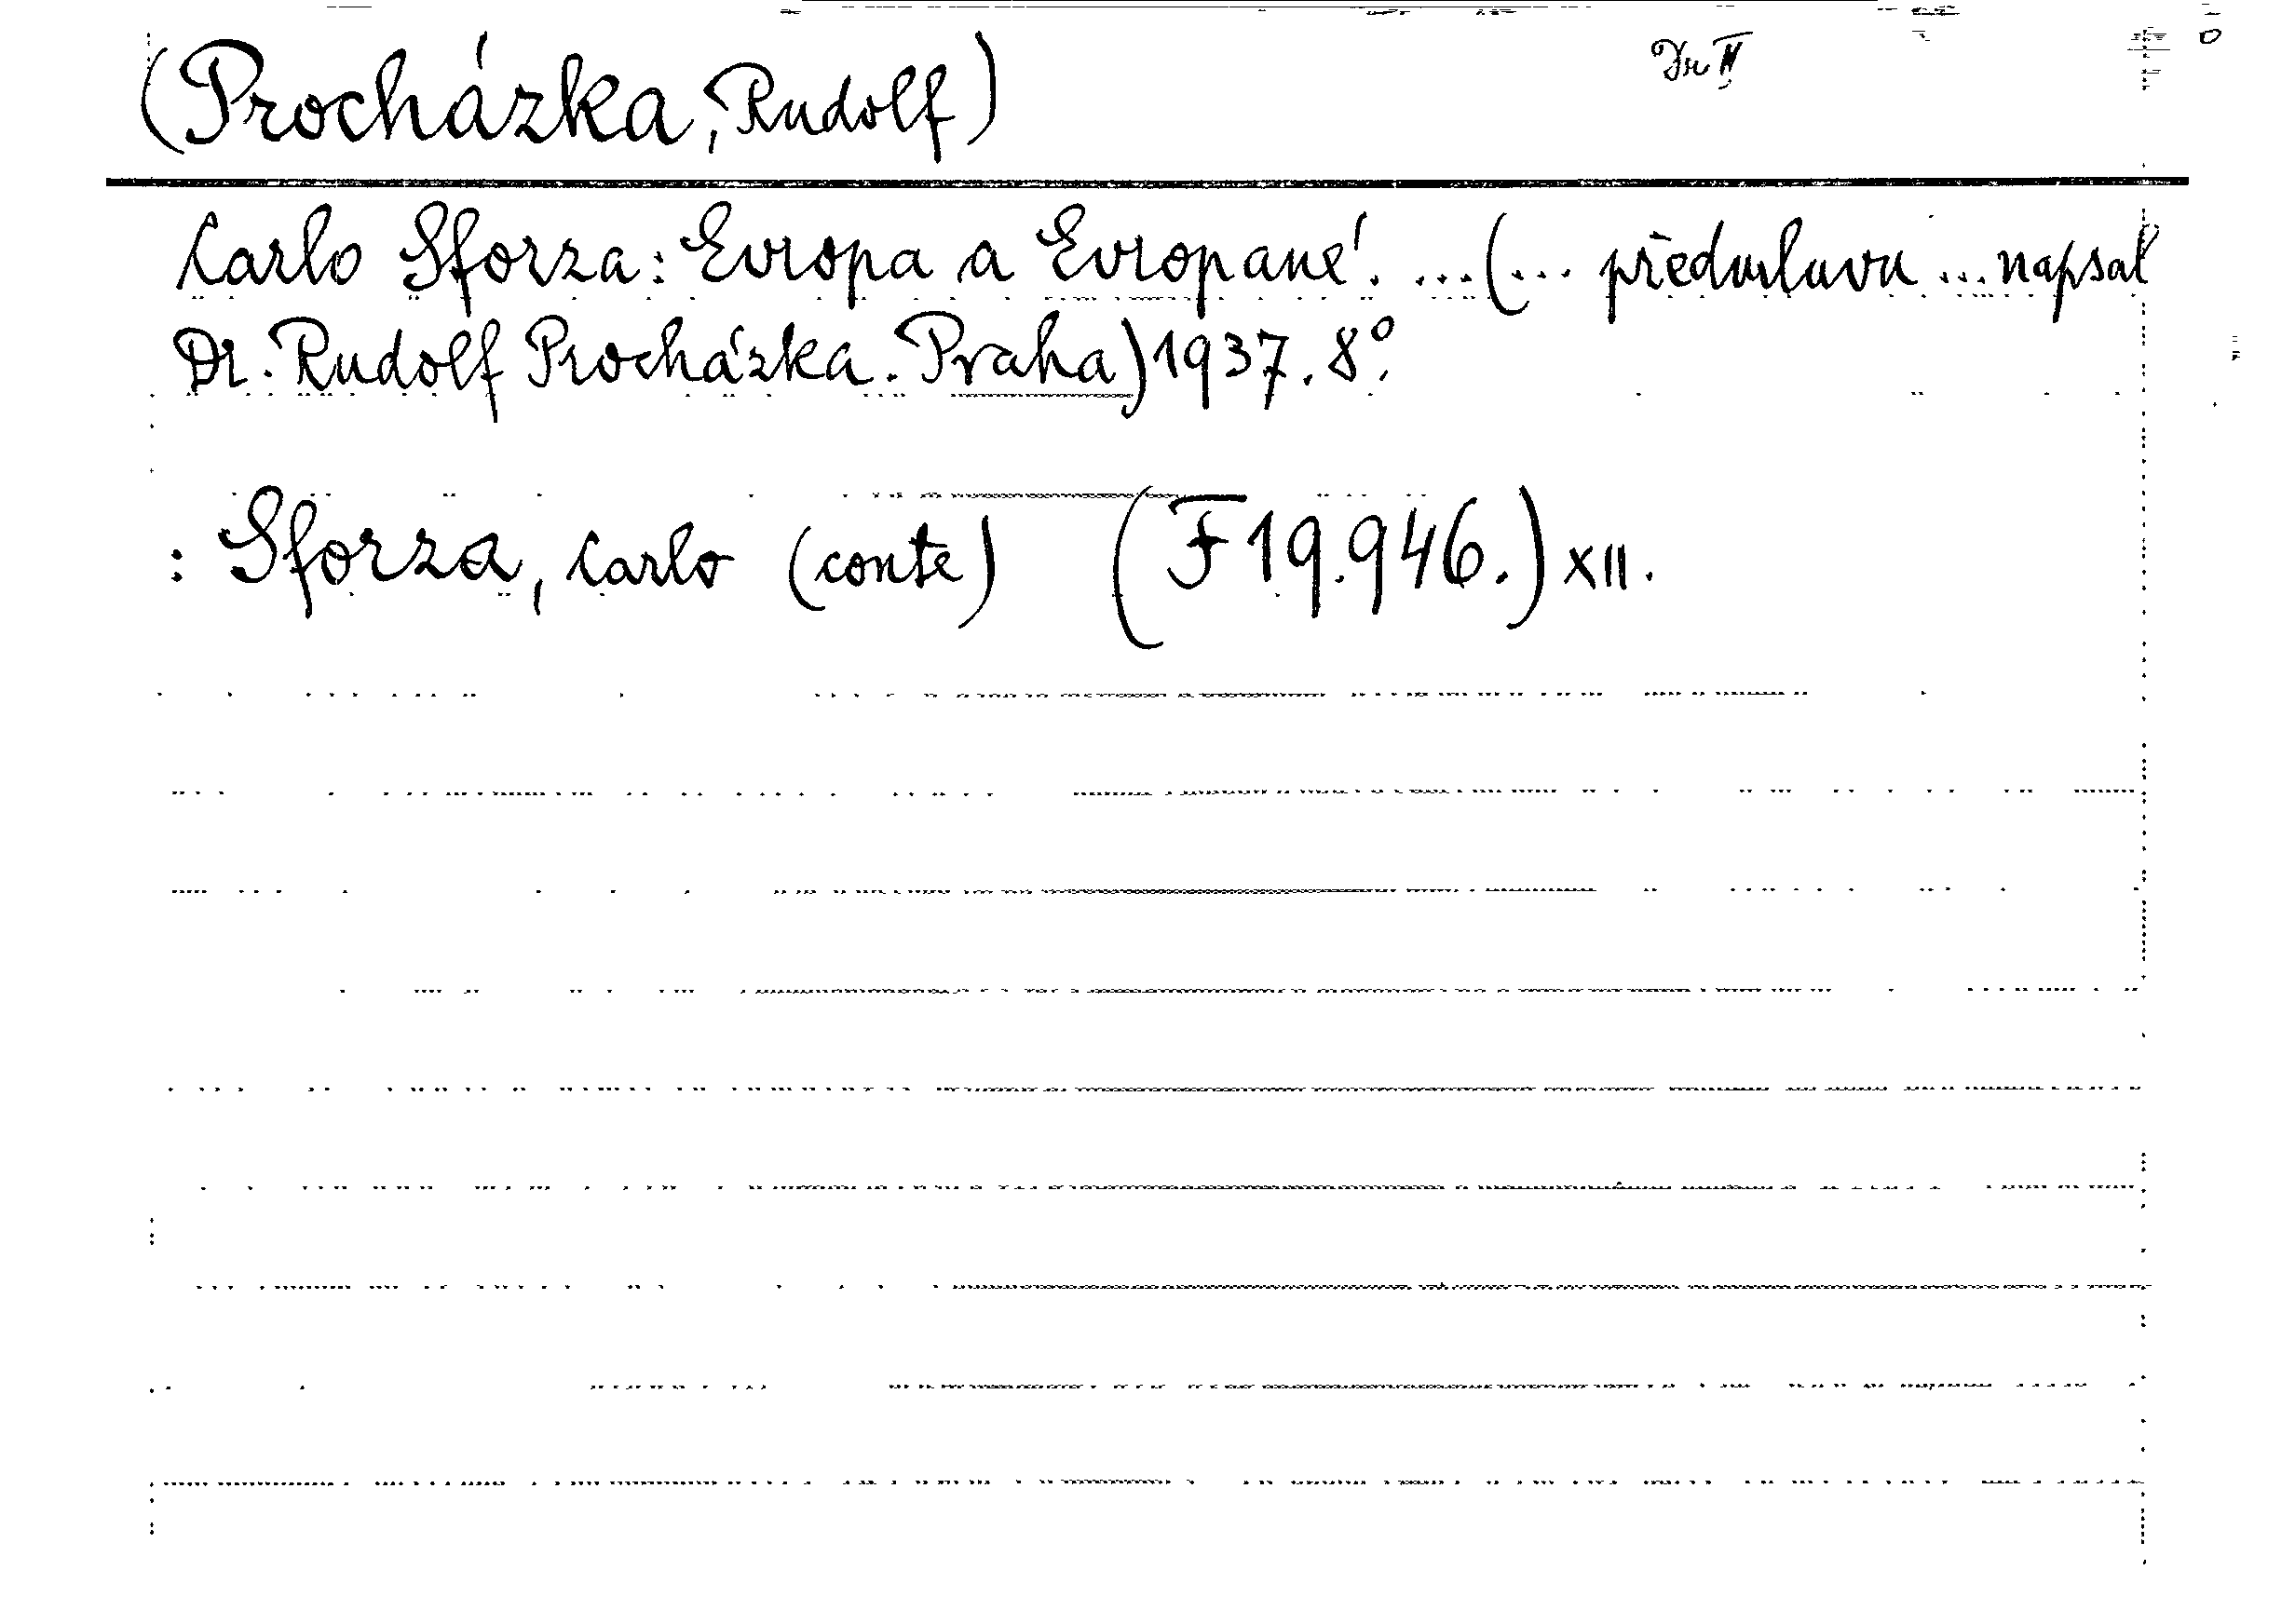 (Procházka, Rudolf)
Carlo Sforza: Evropa a Evropané. ...(... předmluvu ... napsal
Dr. Rudolf Procházka. Praha) 1937. 8°.
: Sforza, Carlo (conte) (F 19.946.) XII.